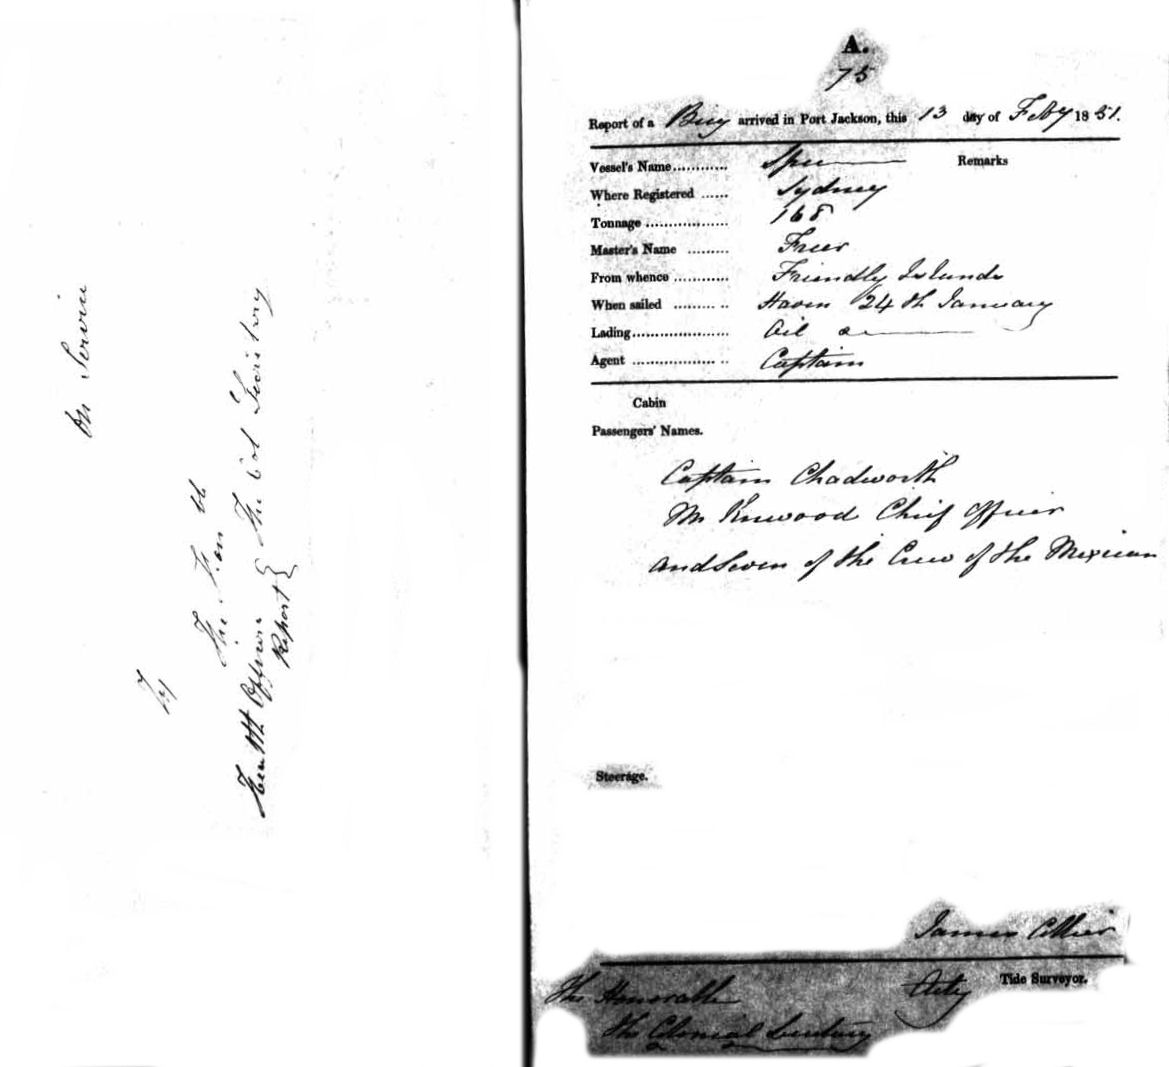 On Service
To
The Honble
The Col Secretary
Health Officers
Report
A.
75
Report of a Brig arrived in Port Jackson, this 13 day of Feby 1851.
Vessel's Name............ Spec Remarks
Where Registered ...... Sydney
Tonnage .................. 168
Master's Name ......... Freer
From whence ............ Friendly Islands
When sailed ......... .. Haven 24th January
Lading..................... Oil &
Agent .................. .. Captain
Cabin
Passengers' Names.
Captain Chadworth
Mr Kenwood Chief Officer
and Seven of the Crew of the Mexican
Steerage.
James Collier
Actg Tide Surveyor.
The Honorable
The Colonial Secretary